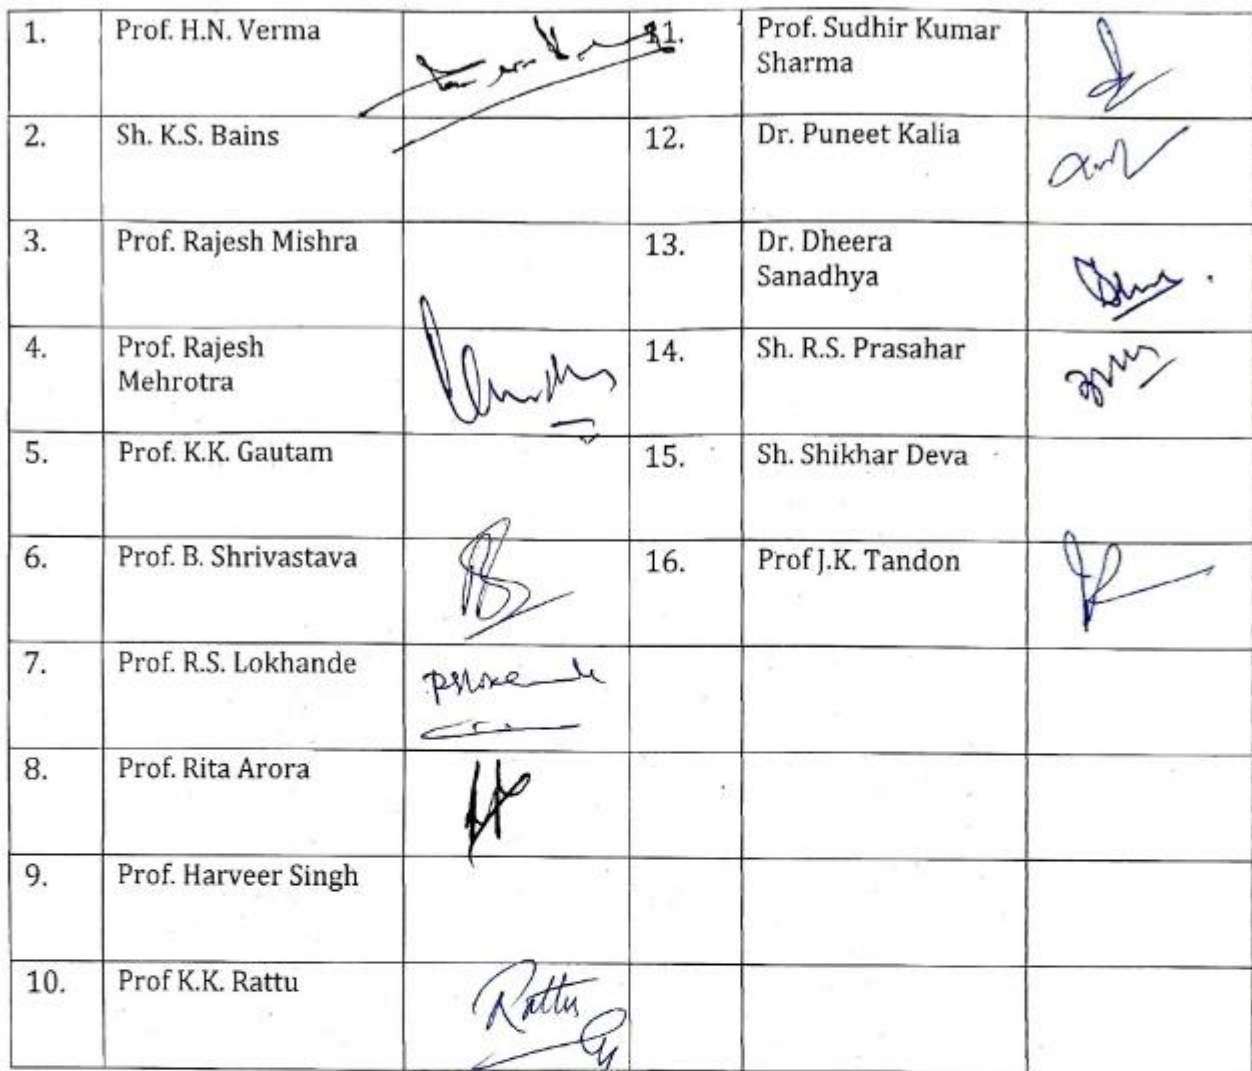 1. Prof. H.N. Verma 11. Prof. Sudhir Kumar
Sharma
2. Sh. K.S. Bains 12. Dr. Puneet Kalia
3. Prof. Rajesh Mishra 13. Dr. Dheera
Sanadhya
4. Prof. Rajesh 14. Sh. R.S. Prasahar
Mehrotra
5. Prof. K.K. Gautam 15. Sh. Shikhar Deva
6. Prof. B. Shrivastava 16. Prof J.K. Tandon
7. Prof. R.S. Lokhande
8. Prof. Rita Arora
9. Prof. Harveer Singh
10. Prof K.K. Rattu Rattu